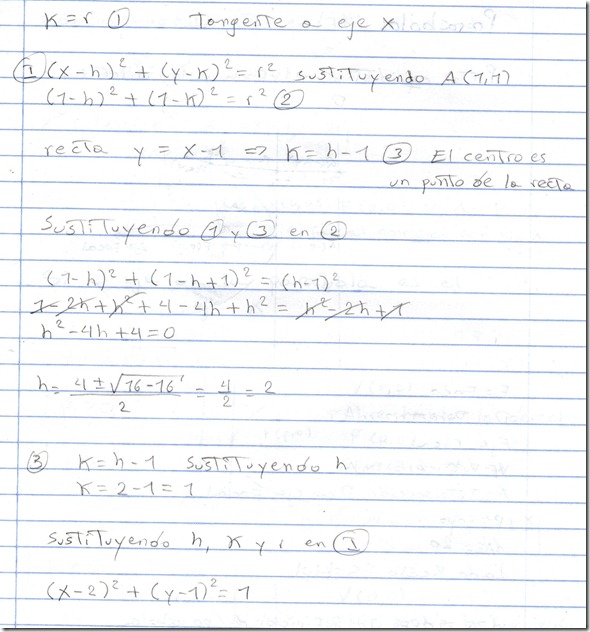 K = r ① Tangente a eje x
Ⓘ (x-h)² + (y-K)² = r² sustituyendo A(1,1)
(1-h)² + (1-K)² = r² ②
recta y = x-1 => K = h-1 ③ El centro es
un punto de la recta
Sustituyendo ① y ③ en ②
(1-h)² + (1-h+1)² = (h-1)²
1-2h+h²+4-4h+h² = h²-2h+1
h²-4h+4=0
h = 4±√16-16 / 2 = 4/2 = 2
③ K = h-1 sustituyendo h
K = 2-1 = 1
sustituyendo h, K y r en Ⓘ
(x-2)² + (y-1)² = 1